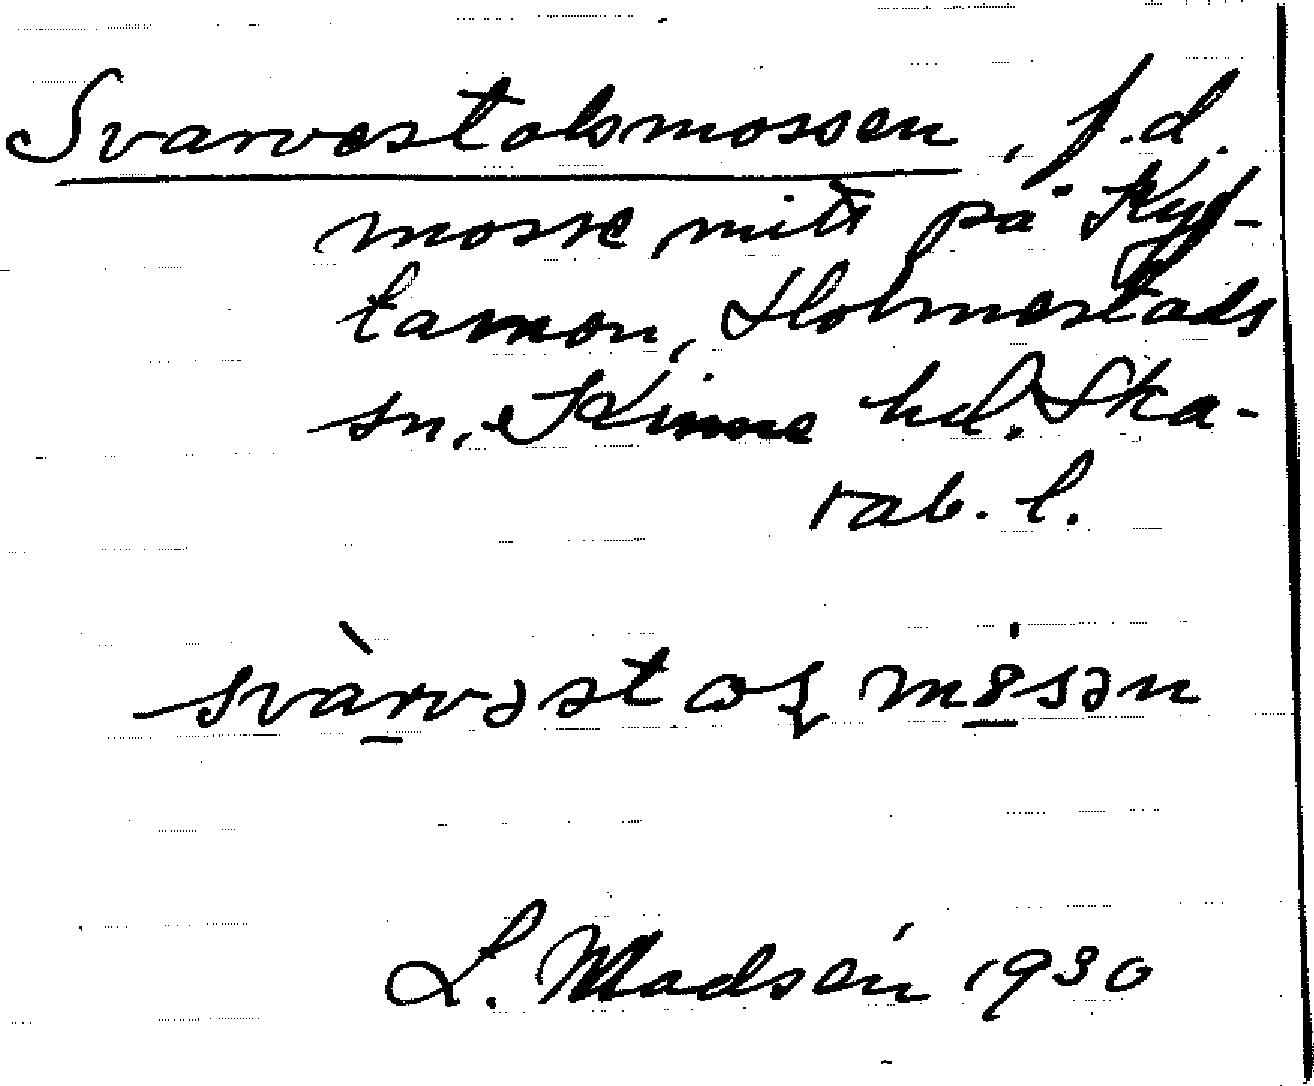 Svarvestolsmossen, f.d.
mosse mitt på Kyf-
tamon, Holmestads
sn, Kinne hd. Ska-
rab. l.
svàrvəstoɷʂmɵ̇sən
L. Madsén 1930